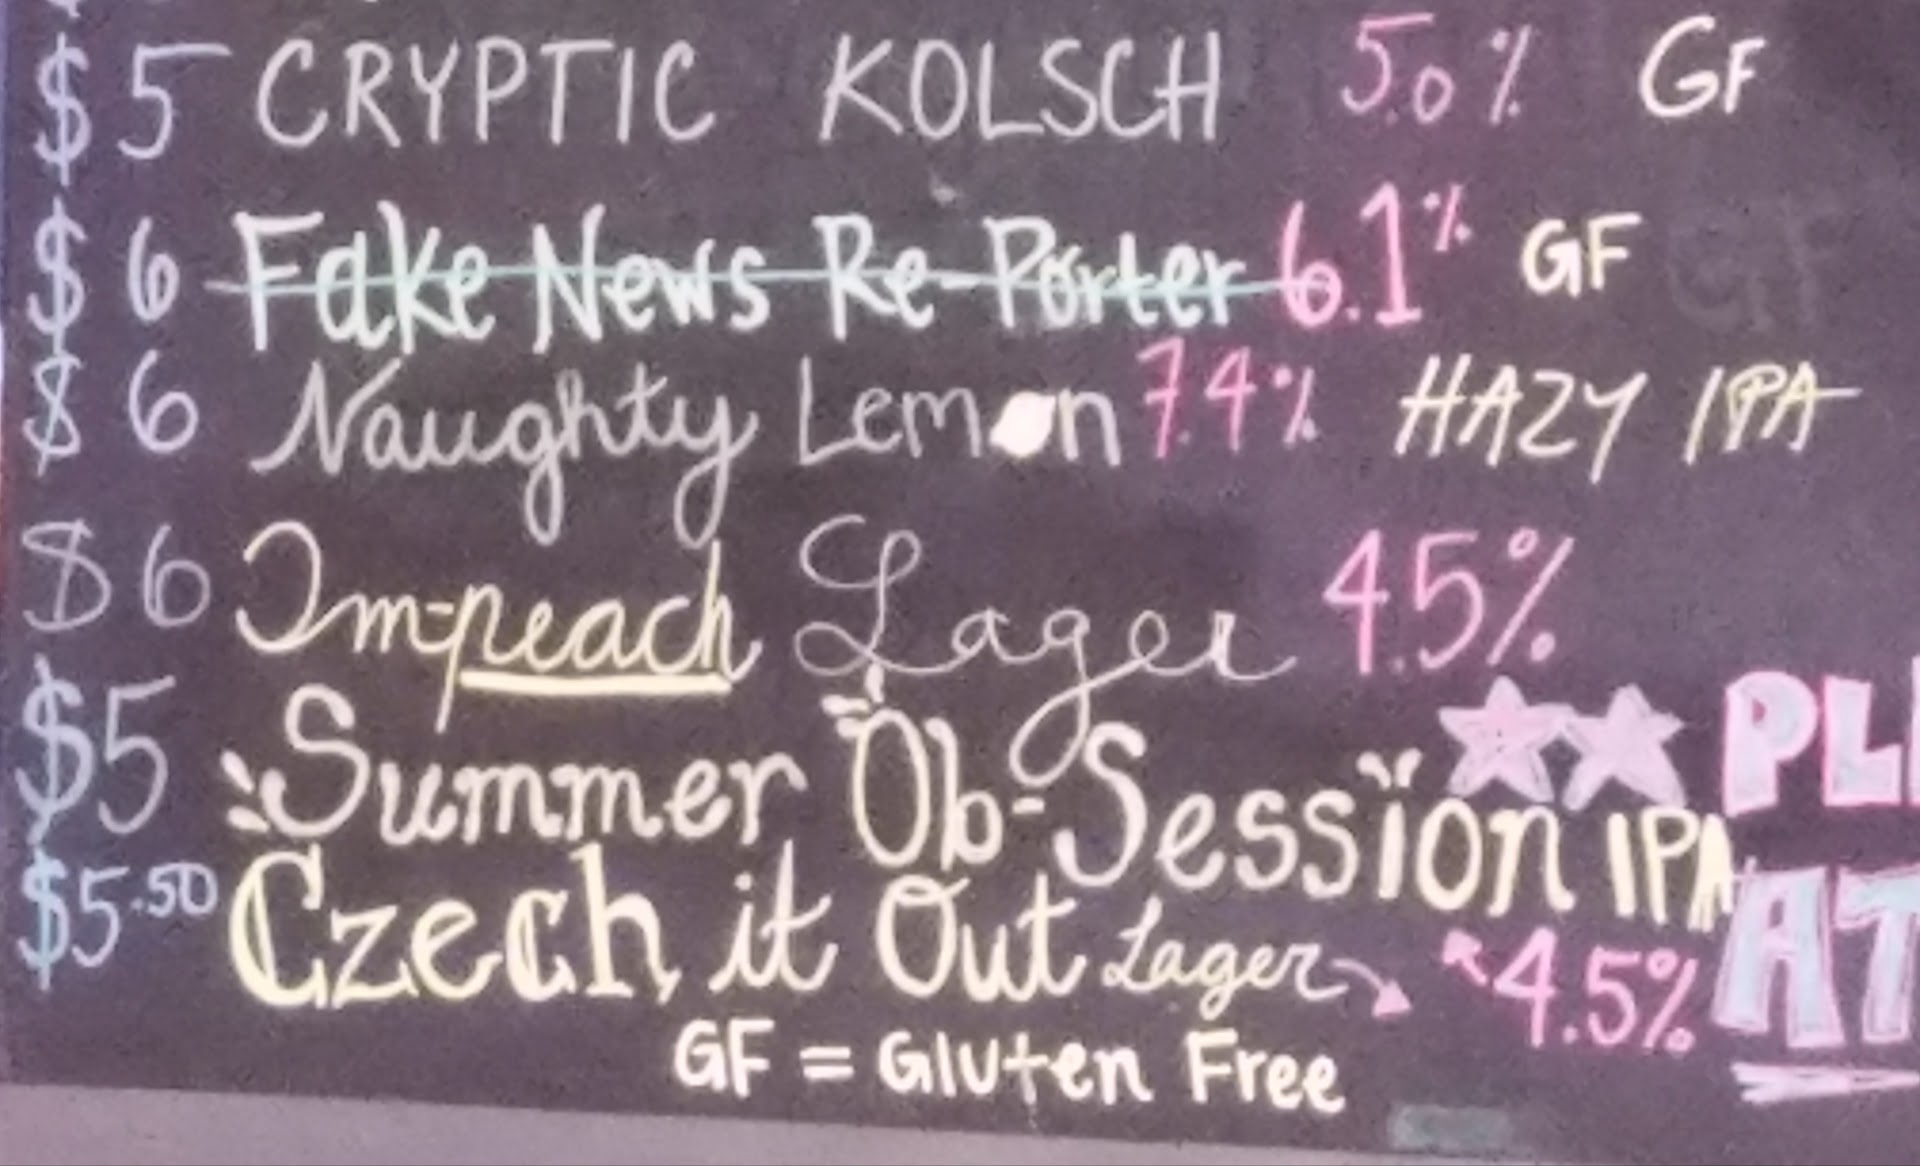 $5 CRYPTIC KOLSCH 5.0% GF
$6 Fake News Re-Porter 6.1% GF
$6 Naughty Lemon 7.4% HAZY IPA
$6 Im-peach Lager 4.5%
$5 Summer Ob-Session IPA
$5.50 Czech it Out Lager 4.5%
GF = Gluten Free
PL
AT